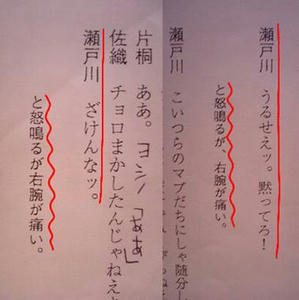 瀬戸川 うるせえッ。黙ってろ！
と怒鳴るが、右腕が痛い。
瀬戸川 こいつらのマブだちにしゃ随分し
片桐 ああ。ヨシノ「ああ」
佐織 チョロまかしたんじゃねえ
瀬戸川 ざけんなッ。
と怒鳴るが右腕が痛い。